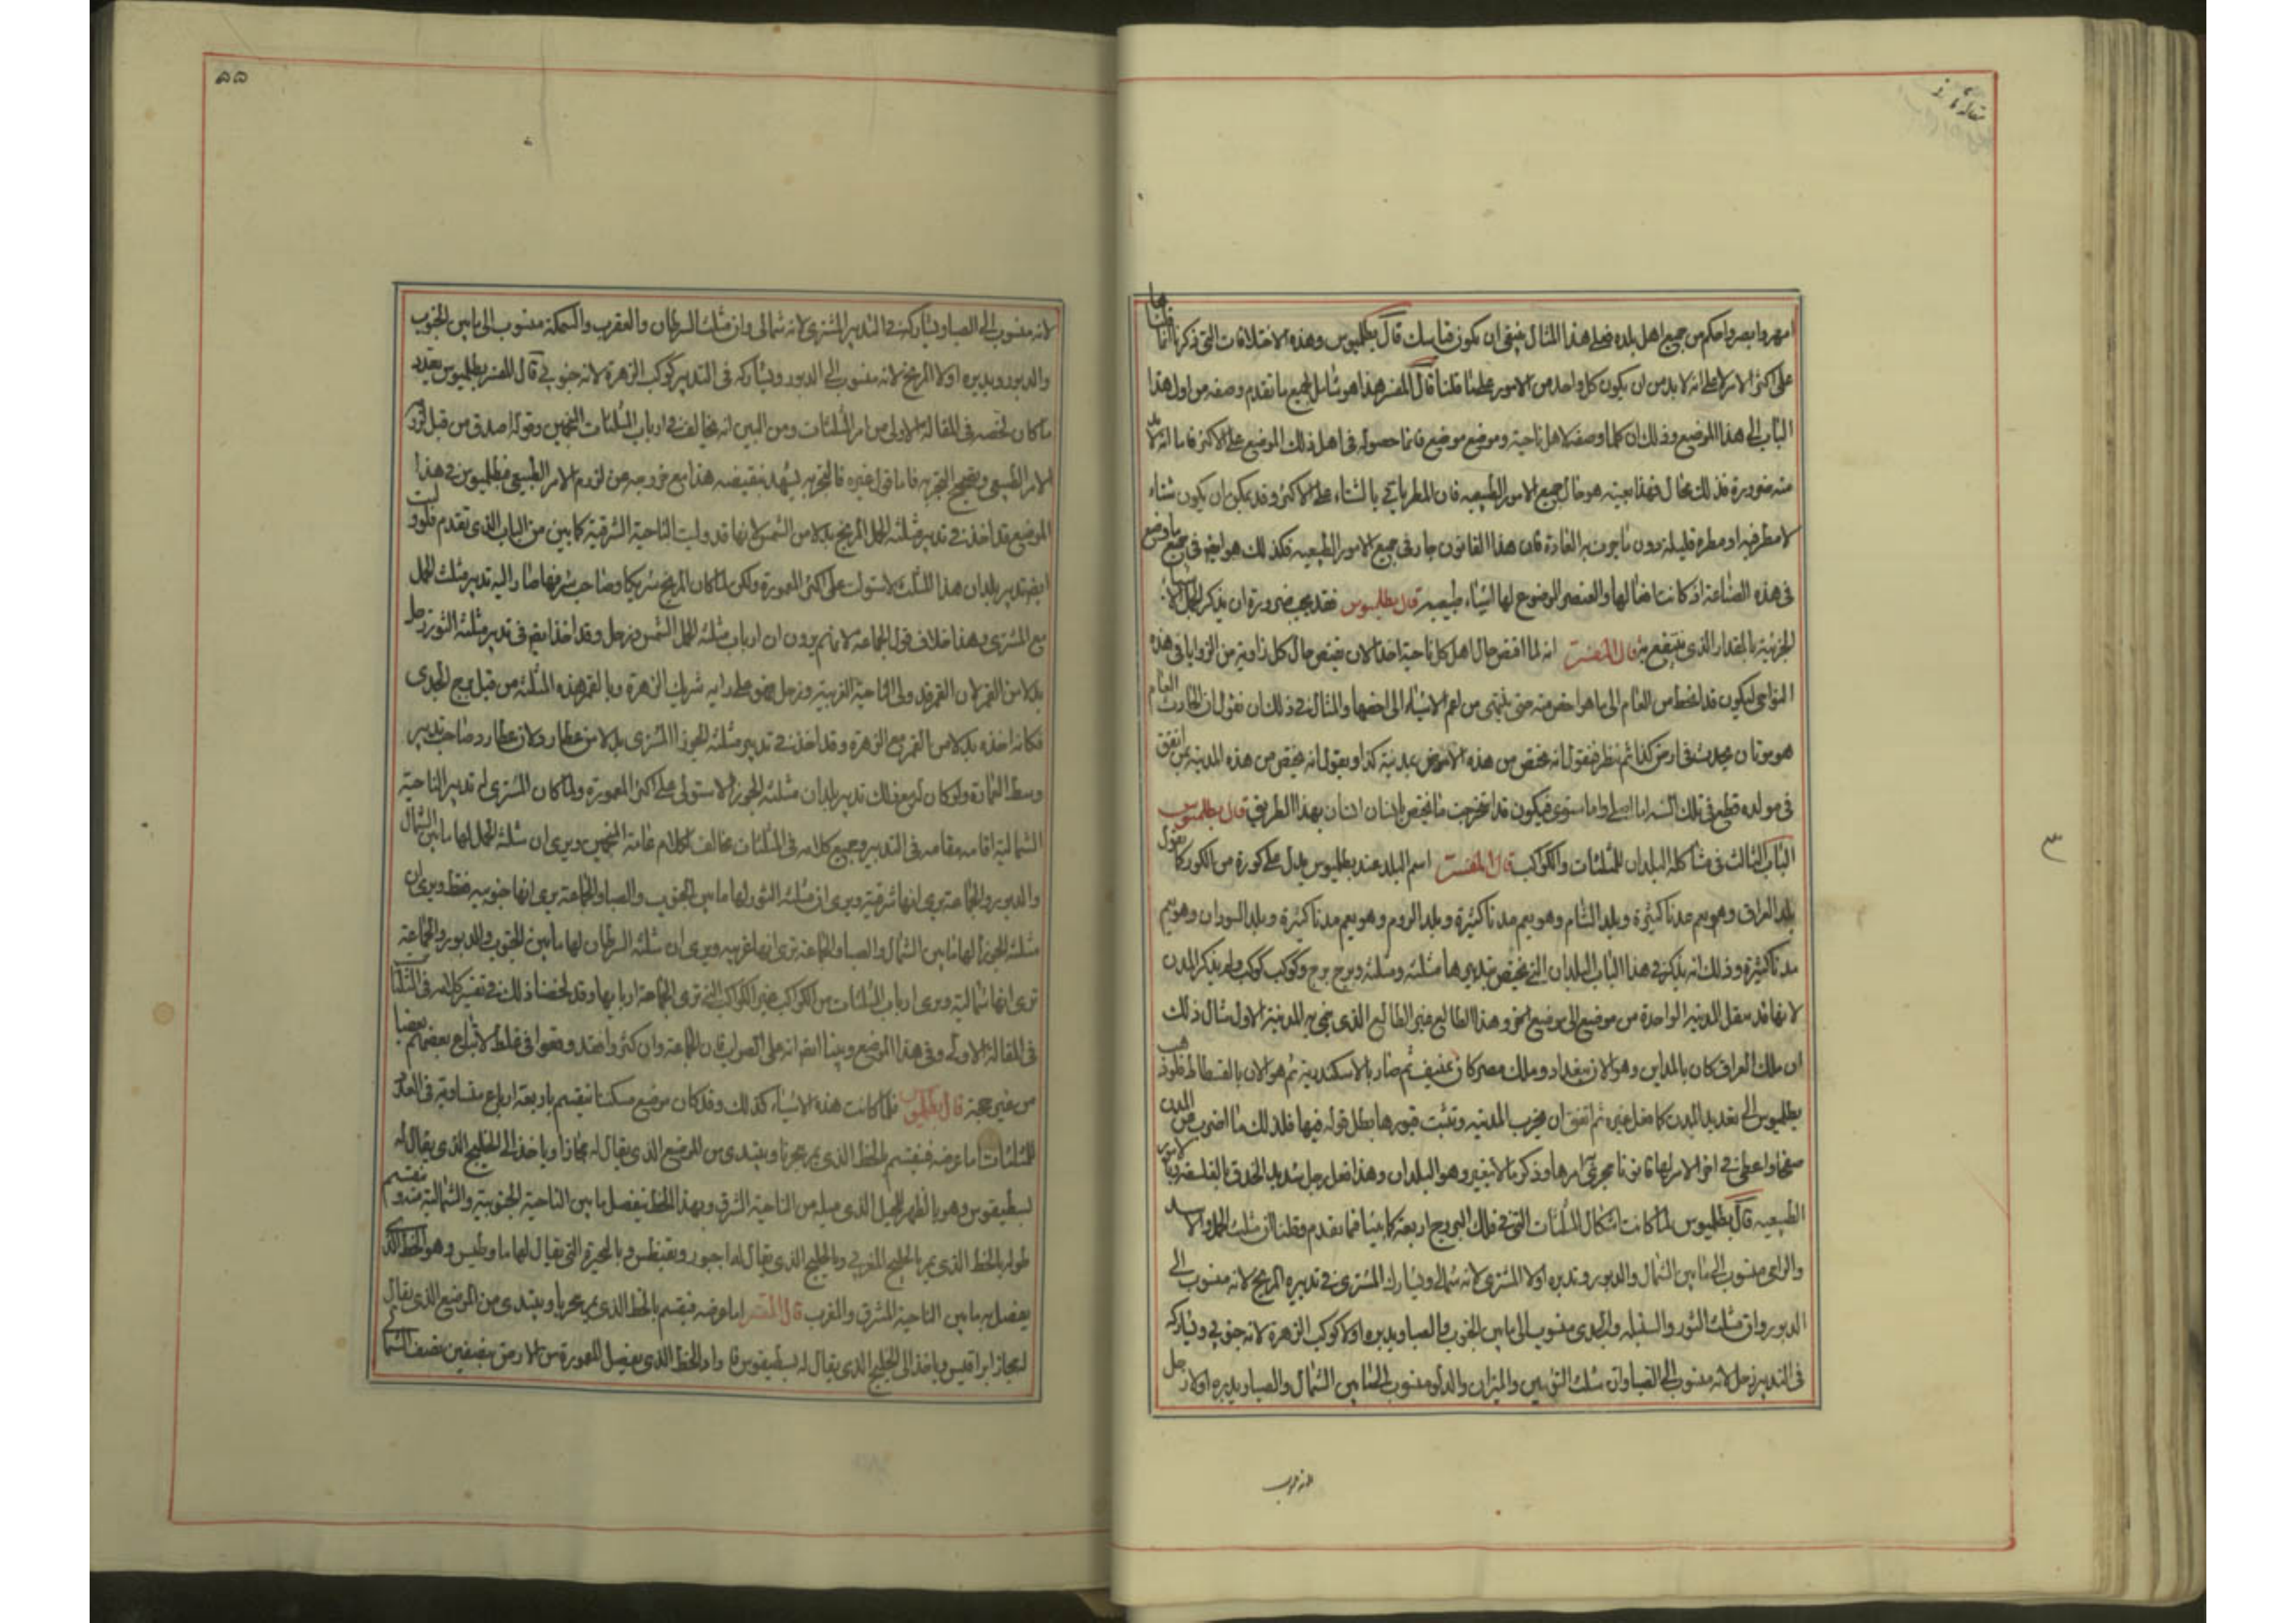 امهر وابصر واحكم من جميع اهل بلده فعلى هذا المثال ينبغي ان يكون قياسك قال بطلميوس وهذه الاختلافات التي ذكرناها فانما
على اكثر الامر لا على انه لا بد من ان يكون كل واحد من الامور على ما قلنا قال المفسر هذا هو شامل لجميع ما تقدم وصفه من اول هذا
الباب الى هذا الموضع وذلك ان كلما وصفه لاهل ناحية وموضع موضع فانما حصوله في اهل ذلك الموضع على الاكثر فاما انه لا بد
منه ضرورة فذلك محال فهذا بعينه هو حال جميع الامور الطبيعيه فان المطر ياتي بالشتاء على الاكثر وقد يمكن ان يكون شتاء
لا مطر فيه او مطره قليلة دون ما جرت به العادة فان هذا القانون جار في جميع الامور الطبيعيه فكذلك هو ايضا في جميع ما وضع
في هذه الصناعة اذ كانت افعالها والعنصر الموضوع لها اشياء طبيعيه قال بطلميوس فقد يجب ضرورة ان يذكر الجمل
الجزئية بالمقدار الذي ينتفع به قال المفسر انه لما اقتص حال اهل كل ناحية اخذ الان يقتص حال كل زاوية من الزوايا في هذه
النواحي ليكون قد انحط من العام الى ما هو اخص منه حتى ينتهي من اعم الاشياء الى اخصها والمثال في ذلك ان نقول ان الحادث العام
هو موتان يحدث في ارض كذا ثم ننظر فنقول انه يختص من هذه الارض بمدينة كذا ونقول انه يختص من هذه المدينة بمن اتفق
في مولده قطع في تلك السنه اما اصلي واما مستوي فيكون قد استخرجت ما يختص بانسان انسان بهذا الطريق قال بطلميوس
الباب الثالث في مشاكلة البلدان للمثلثات والكواكب قال المفسر اسم البلد عند بطلميوس يدل على كورة من الكور كما نقول
بلد العراق وهو يعم مدنا كثيرة وبلد الشام وهو يعم مدنا كثيرة وبلد الروم وهو يعم مدنا كثيرة وبلد السودان وهو يعم
مدنا كثيرة وذلك انه يذكر في هذا الباب البلدان التي يختص بتدبيرها مثلثه ومثلثه وبرج برج وكوكب كوكب ولم يذكر المدن
لانها قد تنقل المدينه الواحدة من موضع الى موضع اخر وهذا الطالع غير الطالع الذي بني به المدينة الاول مثال ذلك
ان ملك العراق كان بالمداين وهو الان ببغداد وملك مصر كان بمنيف ثم صار بالاسكندرية ثم هو الان بالفسطاط فلو ذهب
بطلميوس الى تعديد المدن كما فعل غيره ثم اتفق ان يخرب المدينه وتثبت قبورها بطل قوله فيها فلذلك ما اضرب عن المدن
صفحا واعطى في اخر الامر لها قانونا يجري امرها وذكر ما لا يتغير وهو البلدان وهذا فعل رجل شديد الحذق بالفلسفه وبالامور
الطبيعيه قال بطلميوس لما كانت اشكال المثلثات التي في فلك البروج اربعة كما بينا فيما تقدم وقلنا ان مثلث الحمل والاسد
والرامي منسوب الى ما بين الشمال والدبور وتدبره اولا المشتري لانه شمالي ويشارك المشتري في تدبيره المريخ لانه منسوب الى
الدبور وان مثلث الثور والسنبله والجدي منسوب الى ما بين الجنوب والصبا ويدبره اولا كوكب الزهرة لانه جنوبي ويشاركه
في التدبير زحل لانه منسوب الى الصبا وان مثلث التومين والميزان والدلو منسوب الى ما بين الشمال والصبا ويدبره اولا زحل
لانه منسوب الى الصبا ويشاركه في التدبير المشتري لانه شمالي وان مثلث السرطان والعقرب والسمكة منسوب الى ما بين الجنوب
والدبور ويدبره اولا المريخ لانه منسوب الى الدبور ويشاركه في التدبير كوكب الزهرة لانه جنوبي قال المفسر بطلميوس يعدد
ما كان لخصه في المقاله الاولى من امر المثلثات ومن البين انه يخالف في ارباب المثلثات المنجمين وقوله اصدق من قبل لزوم
الامر الطبيعي وتصحيح التجربه فاما قول غيره فالتجربه تشهد بنقيضه هذا مع خروجه عن لزوم الامر الطبيعي فبطلميوس في هذا
الموضع قد اخذ في تدبير مثلثه الحمل المريخ بدلا من الشمس لانها قد وليت الناحية الشرقية كما بين من الباب الذي تقدم فلو وليت
ايضا تدبير بلدان هذا المثلث لاستولت على اكثر المعمورة ولكن لما كان المريخ شريكا وصاحب شرفها صار اليه تدبير مثلث الحمل
مع المشتري وهذا خلاف قول الجماعة لانهم يرون ان ارباب مثلثة الحمل الشمس وزحل وقد اخذ ايضا في تدبير مثلثه الثور زحل
بدلا من القمر لان القمر قد ولي الناحية الغربية وزحل فهو على رايه شريك الزهرة وبالقمر هذه المثلثه من قبل برج الجدي
فكانه اخذه بدلا من القمر مع الزهرة وقد اخذ في تدبير مثلثه الجوزا المشتري بدلا من عطارد لان عطارد صاحب تدبير
وسط العمارة ولو كان له مع ذلك تدبير بلدان مثلثه الجوزا لاستولى على اكثر المعمورة ولما كان المشتري له تدبير الناحية
الشمالية اقامه مقامه في التدبير وجميع كلامه في المثلثات مخالف لكلام عامة المنجمين ويرى ان مثلثة الحمل لها ما بين الشمال
والدبور والجماعة يرى انها شرقية ويرى ان مثلثه الثور لها ما بين الجنوب والصبا والجماعة يرى انها جنوبيه فقط ويرى ان
مثلثه الجوزا لها ما بين الشمال والصبا والجماعة ترى انها غربيه ويرى ان مثلثه السرطان لها ما بين الجنوب والدبور والجماعة
ترى انها شمالية ويرى ارباب المثلثات من الكواكب غير الكواكب التي ترى الجماعة اربابها وقد لخصنا ذلك في تفسير كلامه في المثلثات
في المقالة الاولى وفي هذا الموضع وبينا ايضا انه على الصواب فان الجماعة وان كثروا فقد وقعوا في غلط لاتباع بعضهم بعضا
من غير حجة قال بطلميوس فلما كانت هذه الاشياء كذلك وقد كان موضع مسكننا ينقسم باربعة ارباع مساوية في العدد
للمثلثات اما عرضه فينقسم بالخط الذي يمر ببحرنا ويبتدي من الموضع الذي يقال له مجاز او ياخذ الى الخليج الذي يقال له
بسطيقوس وهو يا لظهر الجبل الذي ميله من الناحية الشرق وبهذا الخط يفصل ما بين الناحية الجنوبية والشمالية منه وينقسم
طوله بالخط الذي يمر بالخليج المغربي وبالخليج الذي يقال له اجبور وبقنطس وبالبحيرة التي يقال لها ماوطيس وهو الخط الذي
يفصل به ما بين الناحية المشرق والمغرب قال المفسر اما عرضه فينقسم بالخط الذي يمر ببحرنا ويبتدي من الموضع الذي يقال
له مجاز ابراقليس وياخذ الى الخليج الذي يقال له بسطيقوس فان الخط الذي يفصل المعمورة من الارض بنصفين نصف الشمال